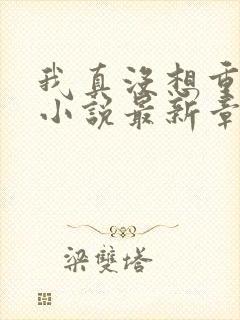 我真没想重
小说最新章
梁雙塔